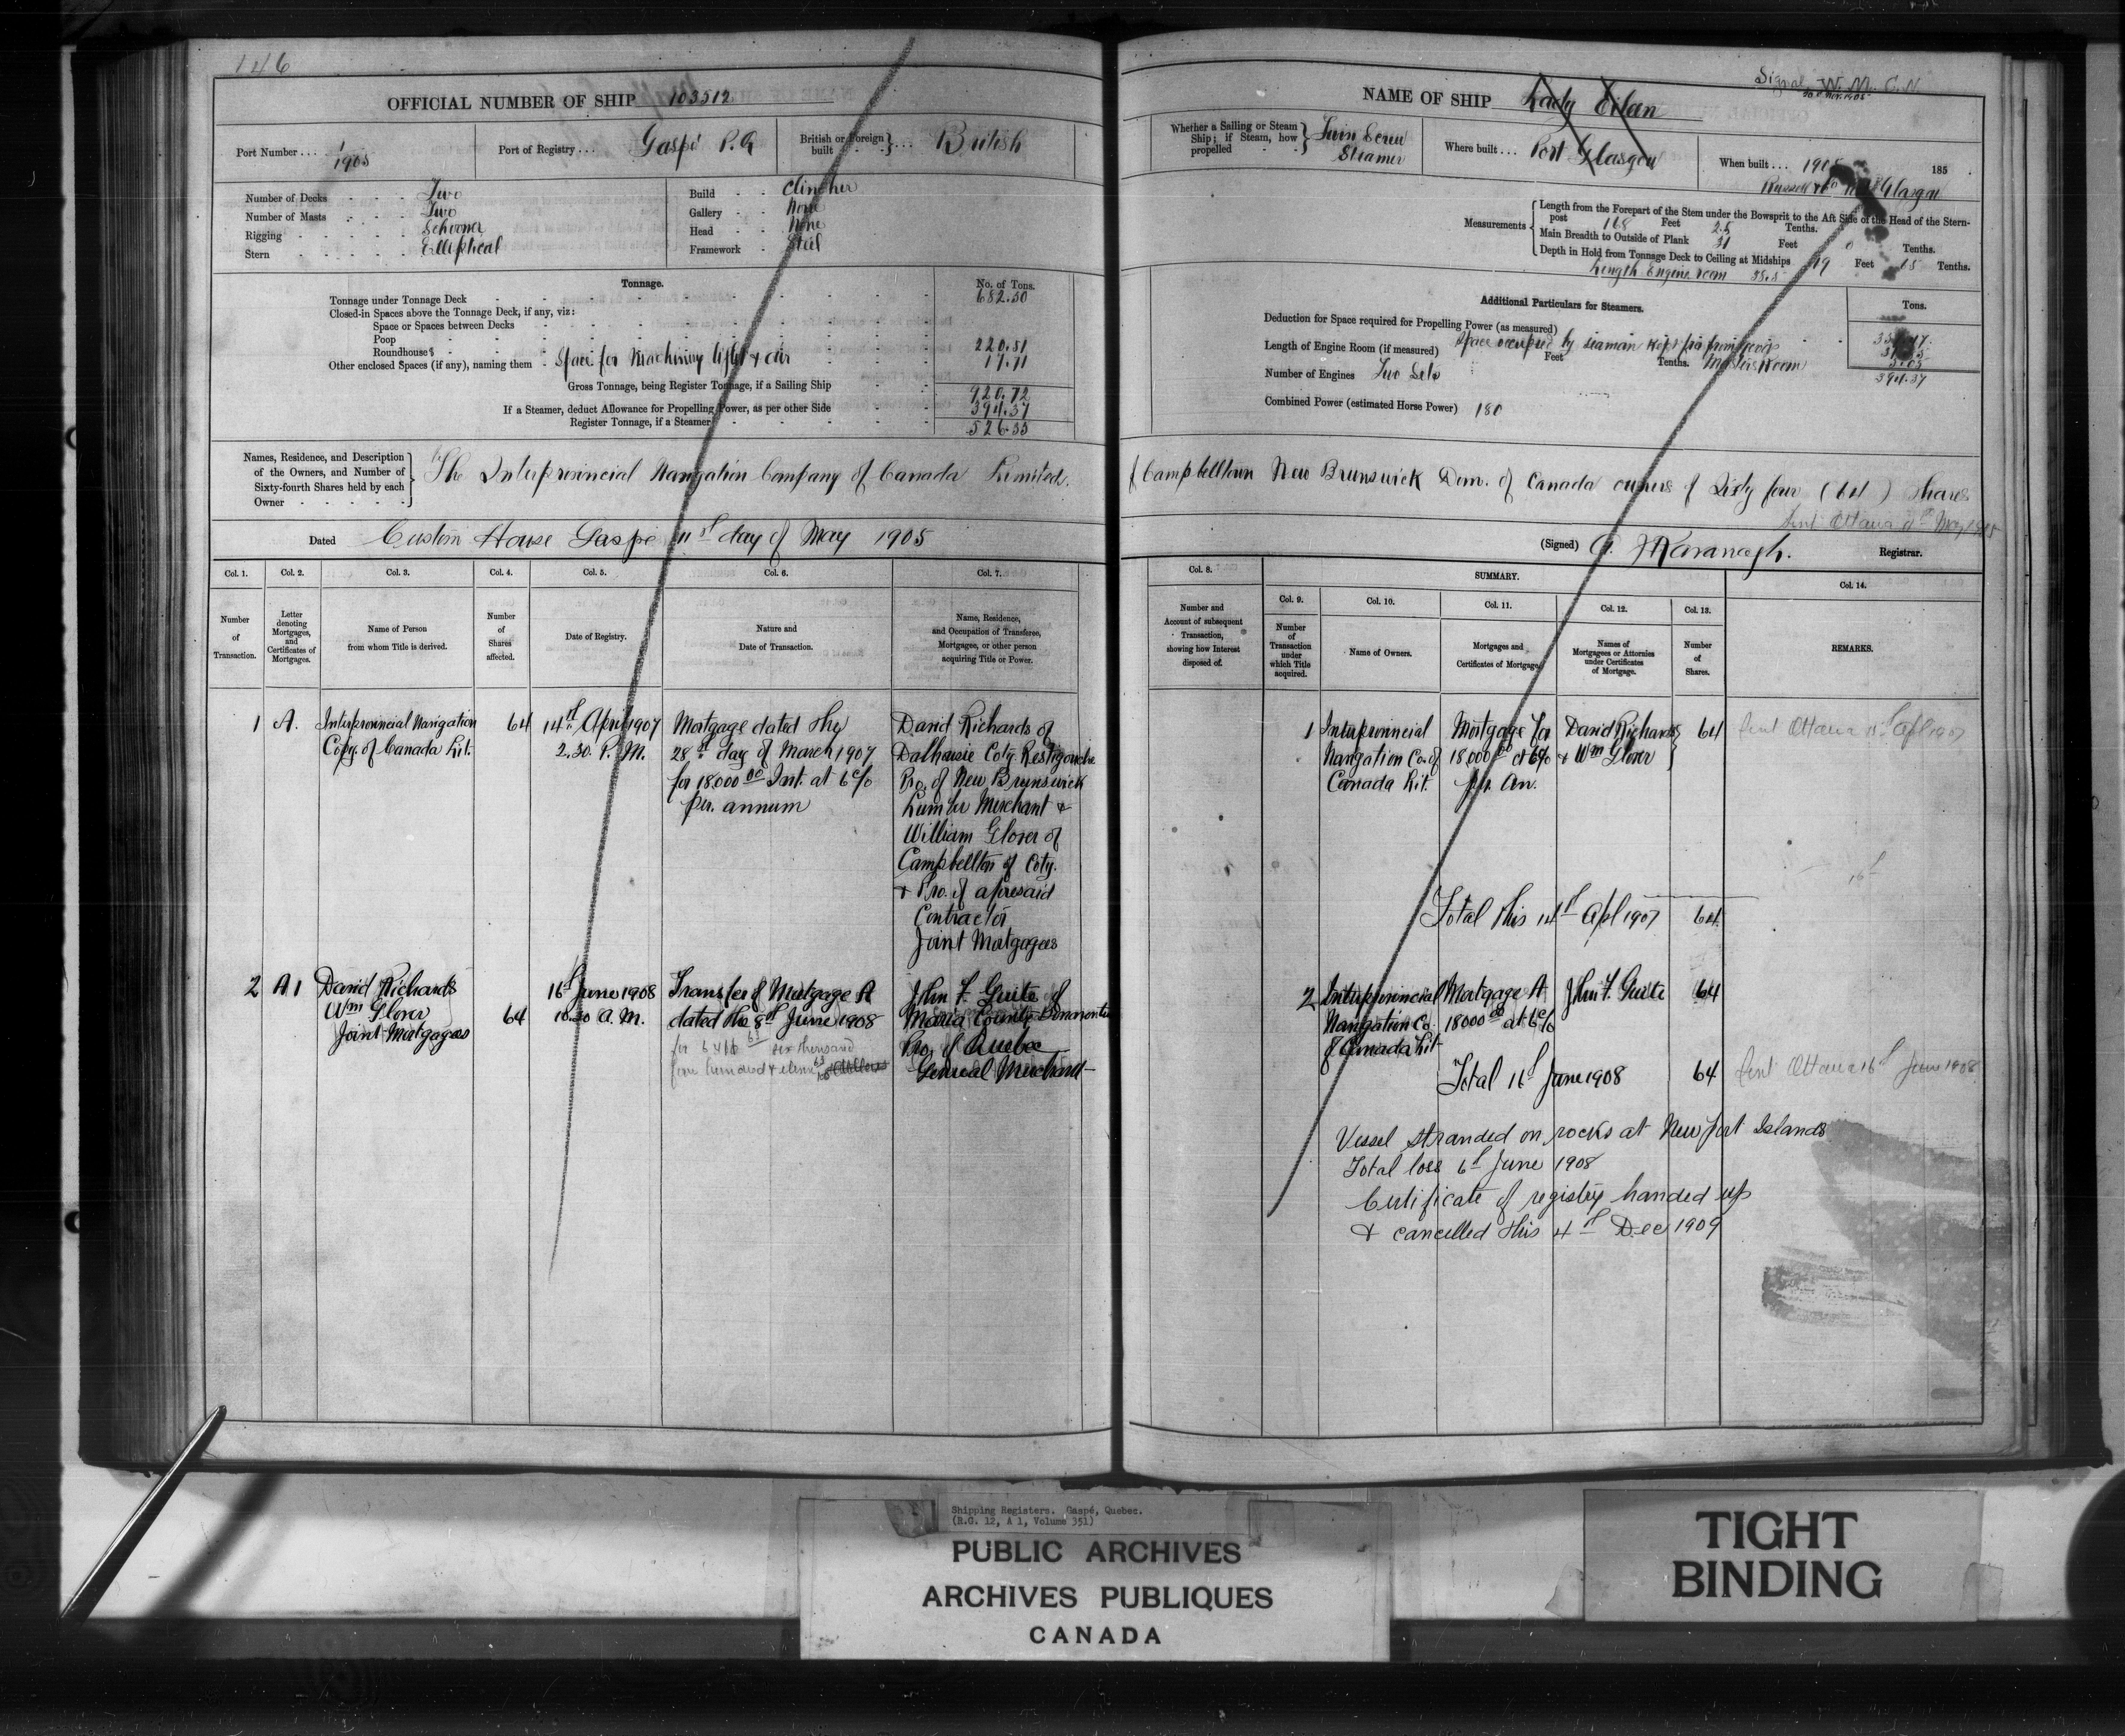 146
OFFICIAL NUMBER OF SHIP 103512
Port Number . . . 1/1905
Port of Registry . . . Gaspé P.Q
British or Foreign built } . . . British
Number of Decks Two
Number of Masts Two
Rigging Schooner
Stern Elliptical
Build Clincher
Gallery None
Head None
Framework Steel
Tonnage. No. of Tons.
Tonnage under Tonnage Deck 682.50
Closed-in Spaces above the Tonnage Deck, if any, viz:
Space or Spaces between Decks
Poop
Roundhouse 220.51
Other enclosed Spaces (if any), naming them Space for Machinery light & air 17.71
Gross Tonnage, being Register Tonnage, if a Sailing Ship 920.72
If a Steamer, deduct Allowance for Propelling Power, as per other Side 394.37
Register Tonnage, if a Steamer 526.35
Names, Residence, and Description
of the Owners, and Number of
Sixty-fourth Shares held by each
Owner
The Interprovincial Navigation Company of Canada Limited.
Dated Custom House Gaspé 11st day of May 1905
Col. 1. Col. 2. Col. 3. Col. 4. Col. 5. Col. 6. Col. 7.
Number of Transaction.
Letter denoting Mortgages, and Certificates of Mortgages.
Name of Person from whom Title is derived.
Number of Shares affected.
Date of Registry.
Nature and Date of Transaction.
Name, Residence, and Occupation of Transferee, Mortgagee, or other person acquiring Title or Power.
1 A. Interprovincial Navigation 64 14th April 1907 Mortgage dated the David Richards of
Copy. of Canada Lit. 2.30. P.M. 28th day of March 1907 Dalhousie Coty. Restigouche
for 18.000 00 Int. at 6 c/o Pro. of New Brunswick
per. annum Lumber Merchant &
William Glover of
Campbellton of Coty.
& Pro. of aforesaid
Contractor
Joint Mortgagees
2 A1 David Richards 16th June 1908 Transfer of Mortgage A John F. Guite of
Wm Glover 64 10.30 A.M. dated the 8th June 1908 Maria County Bonaventure
Joint Mortgagees Pro. of Quebec
six thousand
General Merchant
NAME OF SHIP Lady Eilen
Signal W. M. C. N.
Whether a Sailing or Steam Ship; if Steam, how propelled } Twin Screw Steamer
Where built . . . Port Glasgow
When built . . . 1905 185
Measurements
Length from the Forepart of the Stem under the Bowsprit to the Aft Side of the Head of the Stern-
post 168 Feet 2.5 Tenths.
Main Breadth to Outside of Plank 31 Feet 0 Tenths.
Depth in Hold from Tonnage Deck to Ceiling at Midships 19 Feet 15 Tenths.
Length Engine room 35.5
Additional Particulars for Steamers. Tons.
Deduction for Space required for Propelling Power (as measured)
Space occupied by seaman
Length of Engine Room (if measured) Feet Tenths. Masters Room
Number of Engines Two Sets 394.37
Combined Power (estimated Horse Power) 180
of Campbelltown New Brunswick Dom. of Canada owners of Sixty four (64) Shares
Sent Ottawa 11th May 1905
(Signed) G. J Kavanagh. Registrar.
Col. 8. SUMMARY. Col. 14.
Col. 9. Col. 10. Col. 11. Col. 12. Col. 13.
Number and Account of subsequent Transaction, showing how Interest disposed of.
Number of Transaction under which Title acquired.
Name of Owners.
Mortgages and Certificates of Mortgage.
Names of Mortgagees or Attornies under Certificates of Mortgage.
Number of Shares.
REMARKS.
1 Interprovincial Mortgage for David Richards 64 Sent Ottawa 15th Apl 1907
Navigation Co. of 18.000 00 at 6% & Wm Glover
Canada Lit. pr. An.
16th
Total this 14th Apl 1907 64
2 Interprovincial Mortgage A John F. Guite 64
Navigation Co. 18000 00 at 6 c/o
of Canada Lit
Total 16th June 1908 64 Sent Ottawa 16th June 1908
Vessel stranded on rocks at Newport Islands
Total loss 6th June 1908
Certificate of registry handed up
& cancelled this 4th Dec 1909
Shipping Registers. Gaspé, Quebec.
(R.G. 12, A 1, Volume 351)
PUBLIC ARCHIVES
ARCHIVES PUBLIQUES
CANADA
TIGHT
BINDING